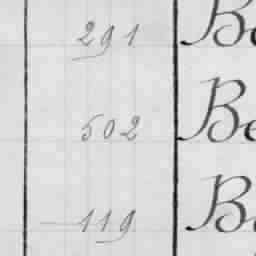 291 Be
502 Be
119 Be